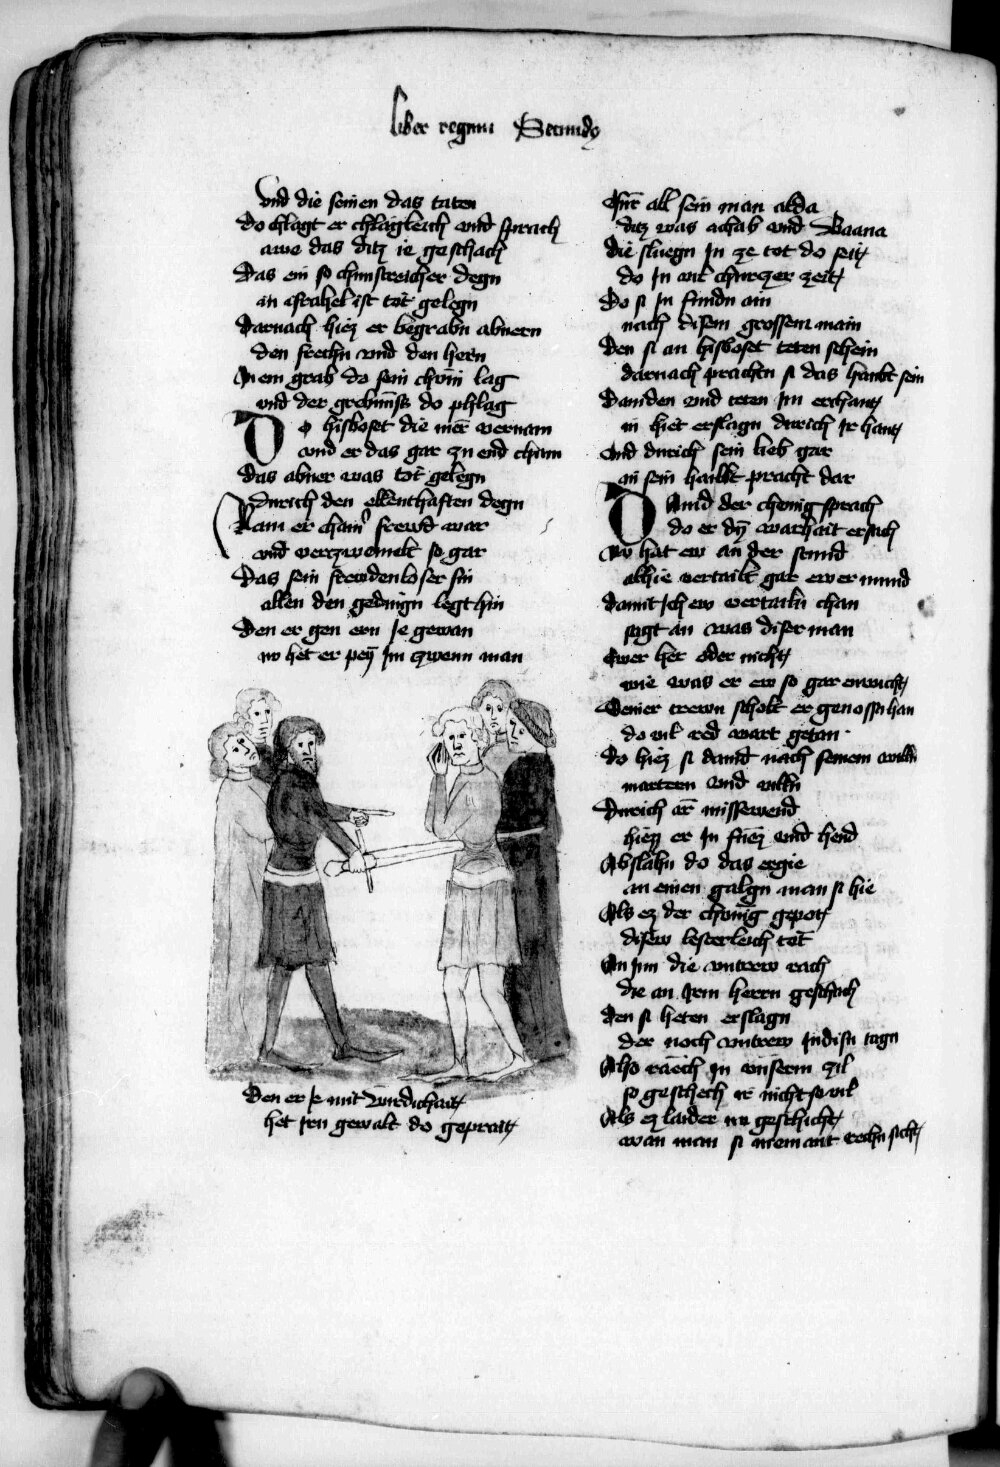 liber regum Secundus
Vnd die seinen das taten
Do chlagt er chlagleich vnd sprach
awe das ditz ie geschach
Das ein so chunstreicher degn
in israhel ist tot gelegn
Darnach hiez er begrabn abnern
den frechn vnd den hern
In em grab do sein chom lag
vnd der grebnusk do phlag
Do hisboset die mer vernam
vnd er das gar zu end cham
Das abner was tot gelegn
durich den ellenthaften degn
Kam er cham frewd war
vnd verczweivelt so gar
Das sein frewdenloser sin
allen den gedingn legt hin
Den er gen ern Je gewan
nv het er pey Im zwenn man
Den er Je mit wirdichait
het Irn gewalt do geprait
Fur all sein man alda
ditz was achab vnd Baana
die sluegn In ze tot do seit
do In ant churczer zeit
Do si In fundn ain
nach disem grossem main
Den si an hisboset teten schein
darnach prachtn si das haubt sein
Dauiden vnd teten Im erchant
in hiet erslagn durich Ir hant
Vnd durich sein lieb gar
im sein haubt pracht dar
Dauid der chonig sprach
do er dy warhait ersach
Nv hat ew an der stund
alhie vertailt gar ewer mund
damit Ich ew vertailn chan
sagt an was diser man
Ewer her oder nicht
wie was er ew so gar enwicht
Seiner trewn scholt er genossn han
do vil red wart getan
do hiez si dauid nach seinem willn
martern vnd villn
Durich ir missewend
hiez er In fuez vnd hend
Abslahn do das ergie
an einen galgn man si hie
Als ez der chonig gepot
disew lesterleich tot
An Im die vntrew rach
die an Irm herrn geschach
Den si heten erslagn
der noch vntrew In disn tagn
Also räch In vnserm zil
so geschech ir nicht so vil
Als ez laider nu geschicht
wan man si niemant rechn sicht